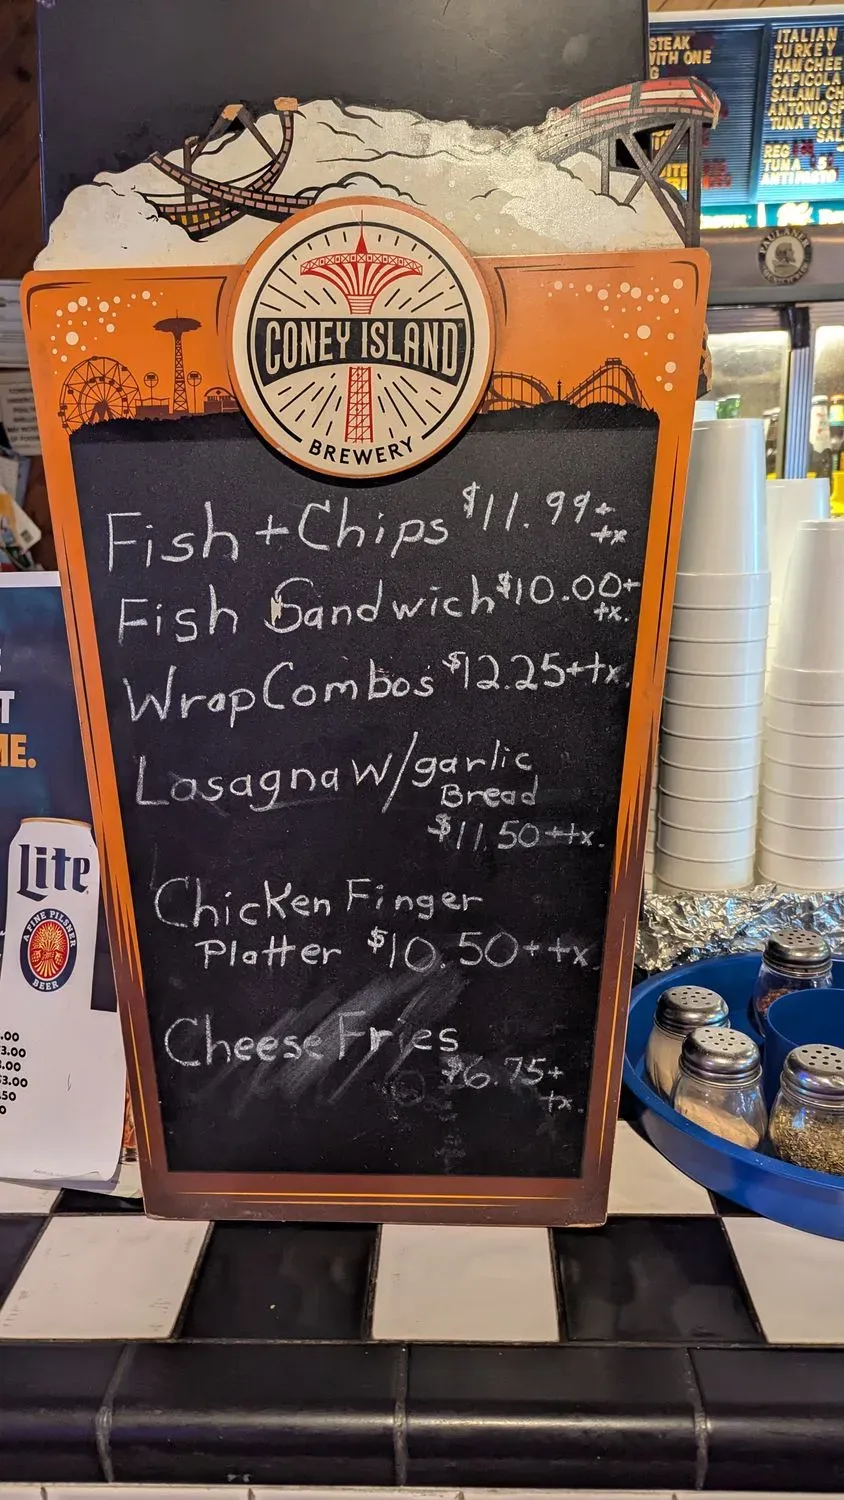 STEAK
WITH ONE
G
ITALIAN
TURKEY
HAM CHEE
CAPICOLA
SALAMI CH
ANTONIO SP
TUNA FISH
SAL
REG
TUNA
ANTIPASTO
PAULANER
CONEY ISLAND
BREWERY
Fish + Chips $11.99 +
tx
Fish Sandwich $10.00 +
tx.
Wrap Combos $12.25 + tx.
Lasagna w/garlic
Bread
$11.50 + tx.
Chicken Finger
Platter $10.50 + tx
Cheese Fries
$6.75 +
tx.
T
ME.
Lite
A FINE PILSNER
BEER
.00
3.00
.00
3.00
.50
0